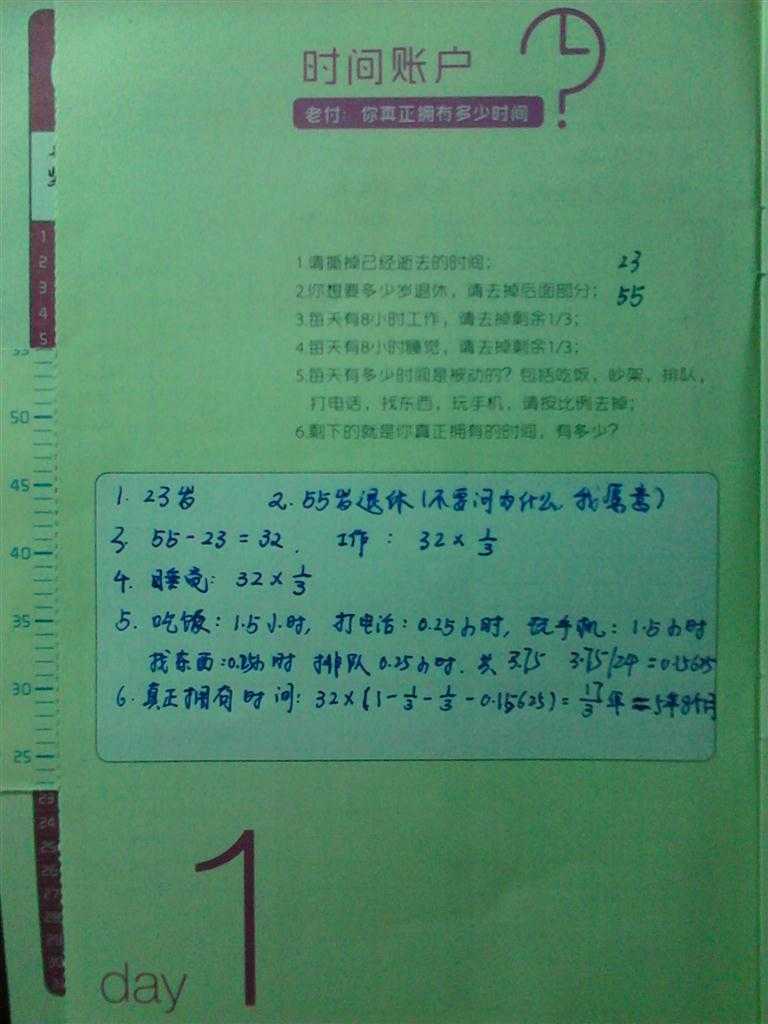 时间账户
老付：你真正拥有多少时间
1.请撕掉已经逝去的时间； 23
2.你想要多少岁退休，请去掉后面部分； 55
3.每天有8小时工作，请去掉剩余1/3；
4.每天有8小时睡觉，请去掉剩余1/3；
5.每天有多少时间是被动的？包括吃饭，吵架，排队，
打电话，找东西，玩手机，请按比例去掉；
6.剩下的就是你真正拥有的时间，有多少？
1. 23岁 2. 55岁退休（不要问为什么 我愿意）
3. 55-23=32. 工作：32×1/3
4. 睡觉：32×1/3
5. 吃饭：1.5小时，打电话：0.25小时，玩手机：1.5小时
找东西：0.25小时 排队 0.25小时. 共 3.75 3.75/24=0.15625
6. 真正拥有时间：32×(1-1/3-1/3-0.15625)=17/3年=5年8个月
1
2
3
4
5
50
45
40
35
30
25
23
24
25
26
27
28
29
30
day 1